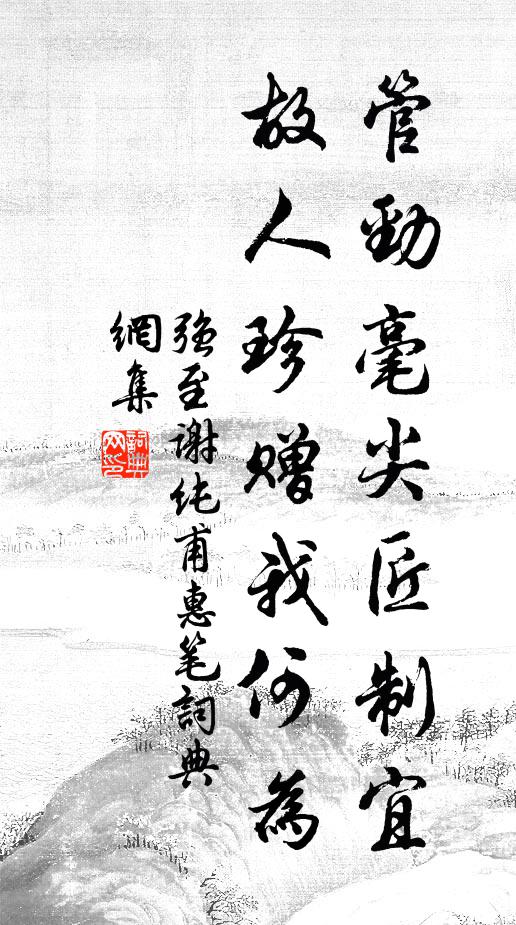 管勁毫尖匠制宜
故人珍贈我何為
強至謝純甫惠笔詞典
網集
詞典
网印